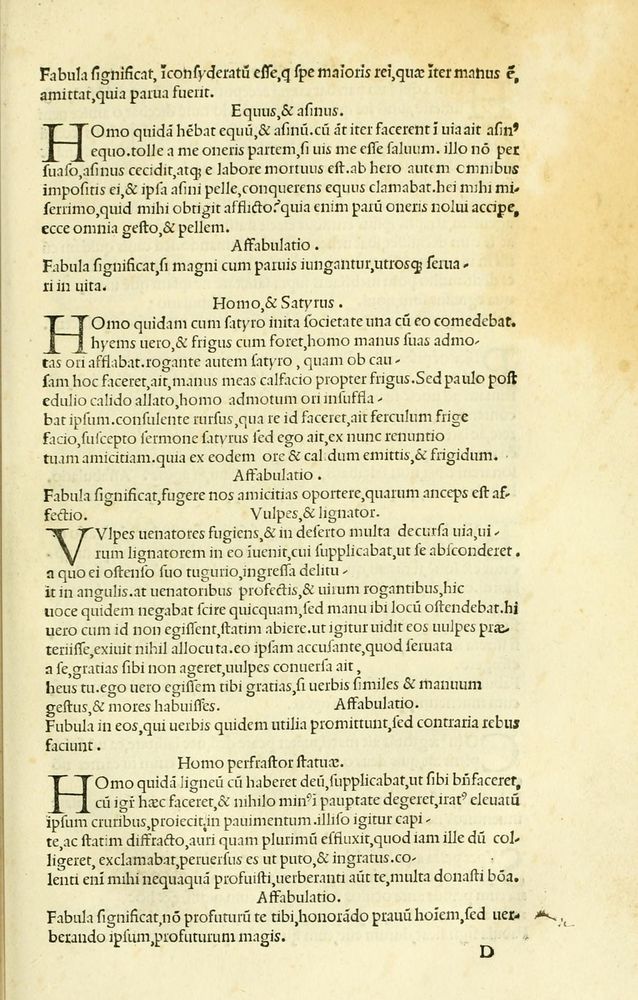 Fabula ſignificat, īconſyderatū eſſe, q ſpe maioris rei, quæ īter manus ē,
amittat, quia parua fuerit.
Equus, & aſinus.
Homo quidā hēbat equū, & aſinū. cū āt iter facerent ī uia ait aſinꝰ
equo. tolle a me oneris partem, ſi uis me eſſe ſaluum. illo nō per
ſuaſo, aſinus cecidit, atq; e labore mortuus eſt. ab hero autem omnibus
impoſitis ei, & ipſa aſini pelle, conquerens equus clamabat. hei mihi mi-
ſerrimo, quid mihi obtigit afflicto? quia enim parū oneris nolui accipe,
ecce omnia geſto, & pellem.
Affabulatio.
Fabula ſignificat, ſi magni cum paruis iungantur, utroſq; ſerua-
ri in uita.
Homo, & Satyrus.
Homo quidam cum ſatyro inita ſocietate una cū eo comedebat.
hyems uero, & frigus cum foret, homo manus ſuas admo-
tas ori afflabat. rogante autem ſatyro, quam ob cau-
ſam hoc faceret, ait, manus meas calfacio propter frigus. Sed paulo poſt
edulio calido allato, homo admotum ori inſuffla-
bat ipſum. conſulente rurſus, qua re id faceret, ait ferculum frige
facio, ſuſcepto ſermone ſatyrus ſed ego ait, ex nunc renuntio
tuam amicitiam. quia ex eodem ore & calidum emittis, & frigidum.
Affabulatio.
Fabula ſignificat, fugere nos amicitias oportere, quarum anceps eſt af-
fectio. Vulpes, & lignator.
VVlpes uenatores fugiens, & in deſerto multa decurſa uia, ui-
rum lignatorem in eo īuenit, cui ſupplicabat, ut ſe abſconderet.
a quo ei oſtenſo ſuo tugurio, ingreſſa delitu-
it in angulis. at uenatoribus profectis, & uirum rogantibus, hic
uoce quidem negabat ſcire quicquam, ſed manu ibi locū oſtendebat. hi
uero cum id non egiſſent, ſtatim abiere. ut igitur uidit eos uulpes præ-
teriiſſe, exiuit nihil allocuta. eo ipſam accuſante, quod ſeruata
a ſe, gratias ſibi non ageret, uulpes conuerſa ait,
heus tu. ego uero egiſſem tibi gratias, ſi uerbis ſimiles & manuum
geſtus, & mores habuiſſes. Affabulatio.
Fubula in eos, qui uerbis quidem utilia promittunt, ſed contraria rebus
faciunt.
Homo perfraſtor ſtatuæ.
Homo quidā ligneū cū haberet deū, ſupplicabat, ut ſibi bn̄faceret,
cū igr̄ hæc faceret, & nihilo minꝰ ī pauptate degeret, iratꝰ eleuatū
ipſum cruribus, proiecit in pauimentum. illiſo igitur capi-
te, ac ſtatim diffracto, auri quam plurimū effluxit, quod iam ille dū col-
ligeret, exclamabat, peruerſus es ut puto, & ingratus. co-
lenti enī mihi nequaquā profuiſti, uerberanti aūt te, multa donaſti bōa.
Affabulatio.
Fabula ſignificat, nō profuturū te tibi, honorādo prauū hoīem, ſed uer-
berando ipſum, profuturum magis.
D